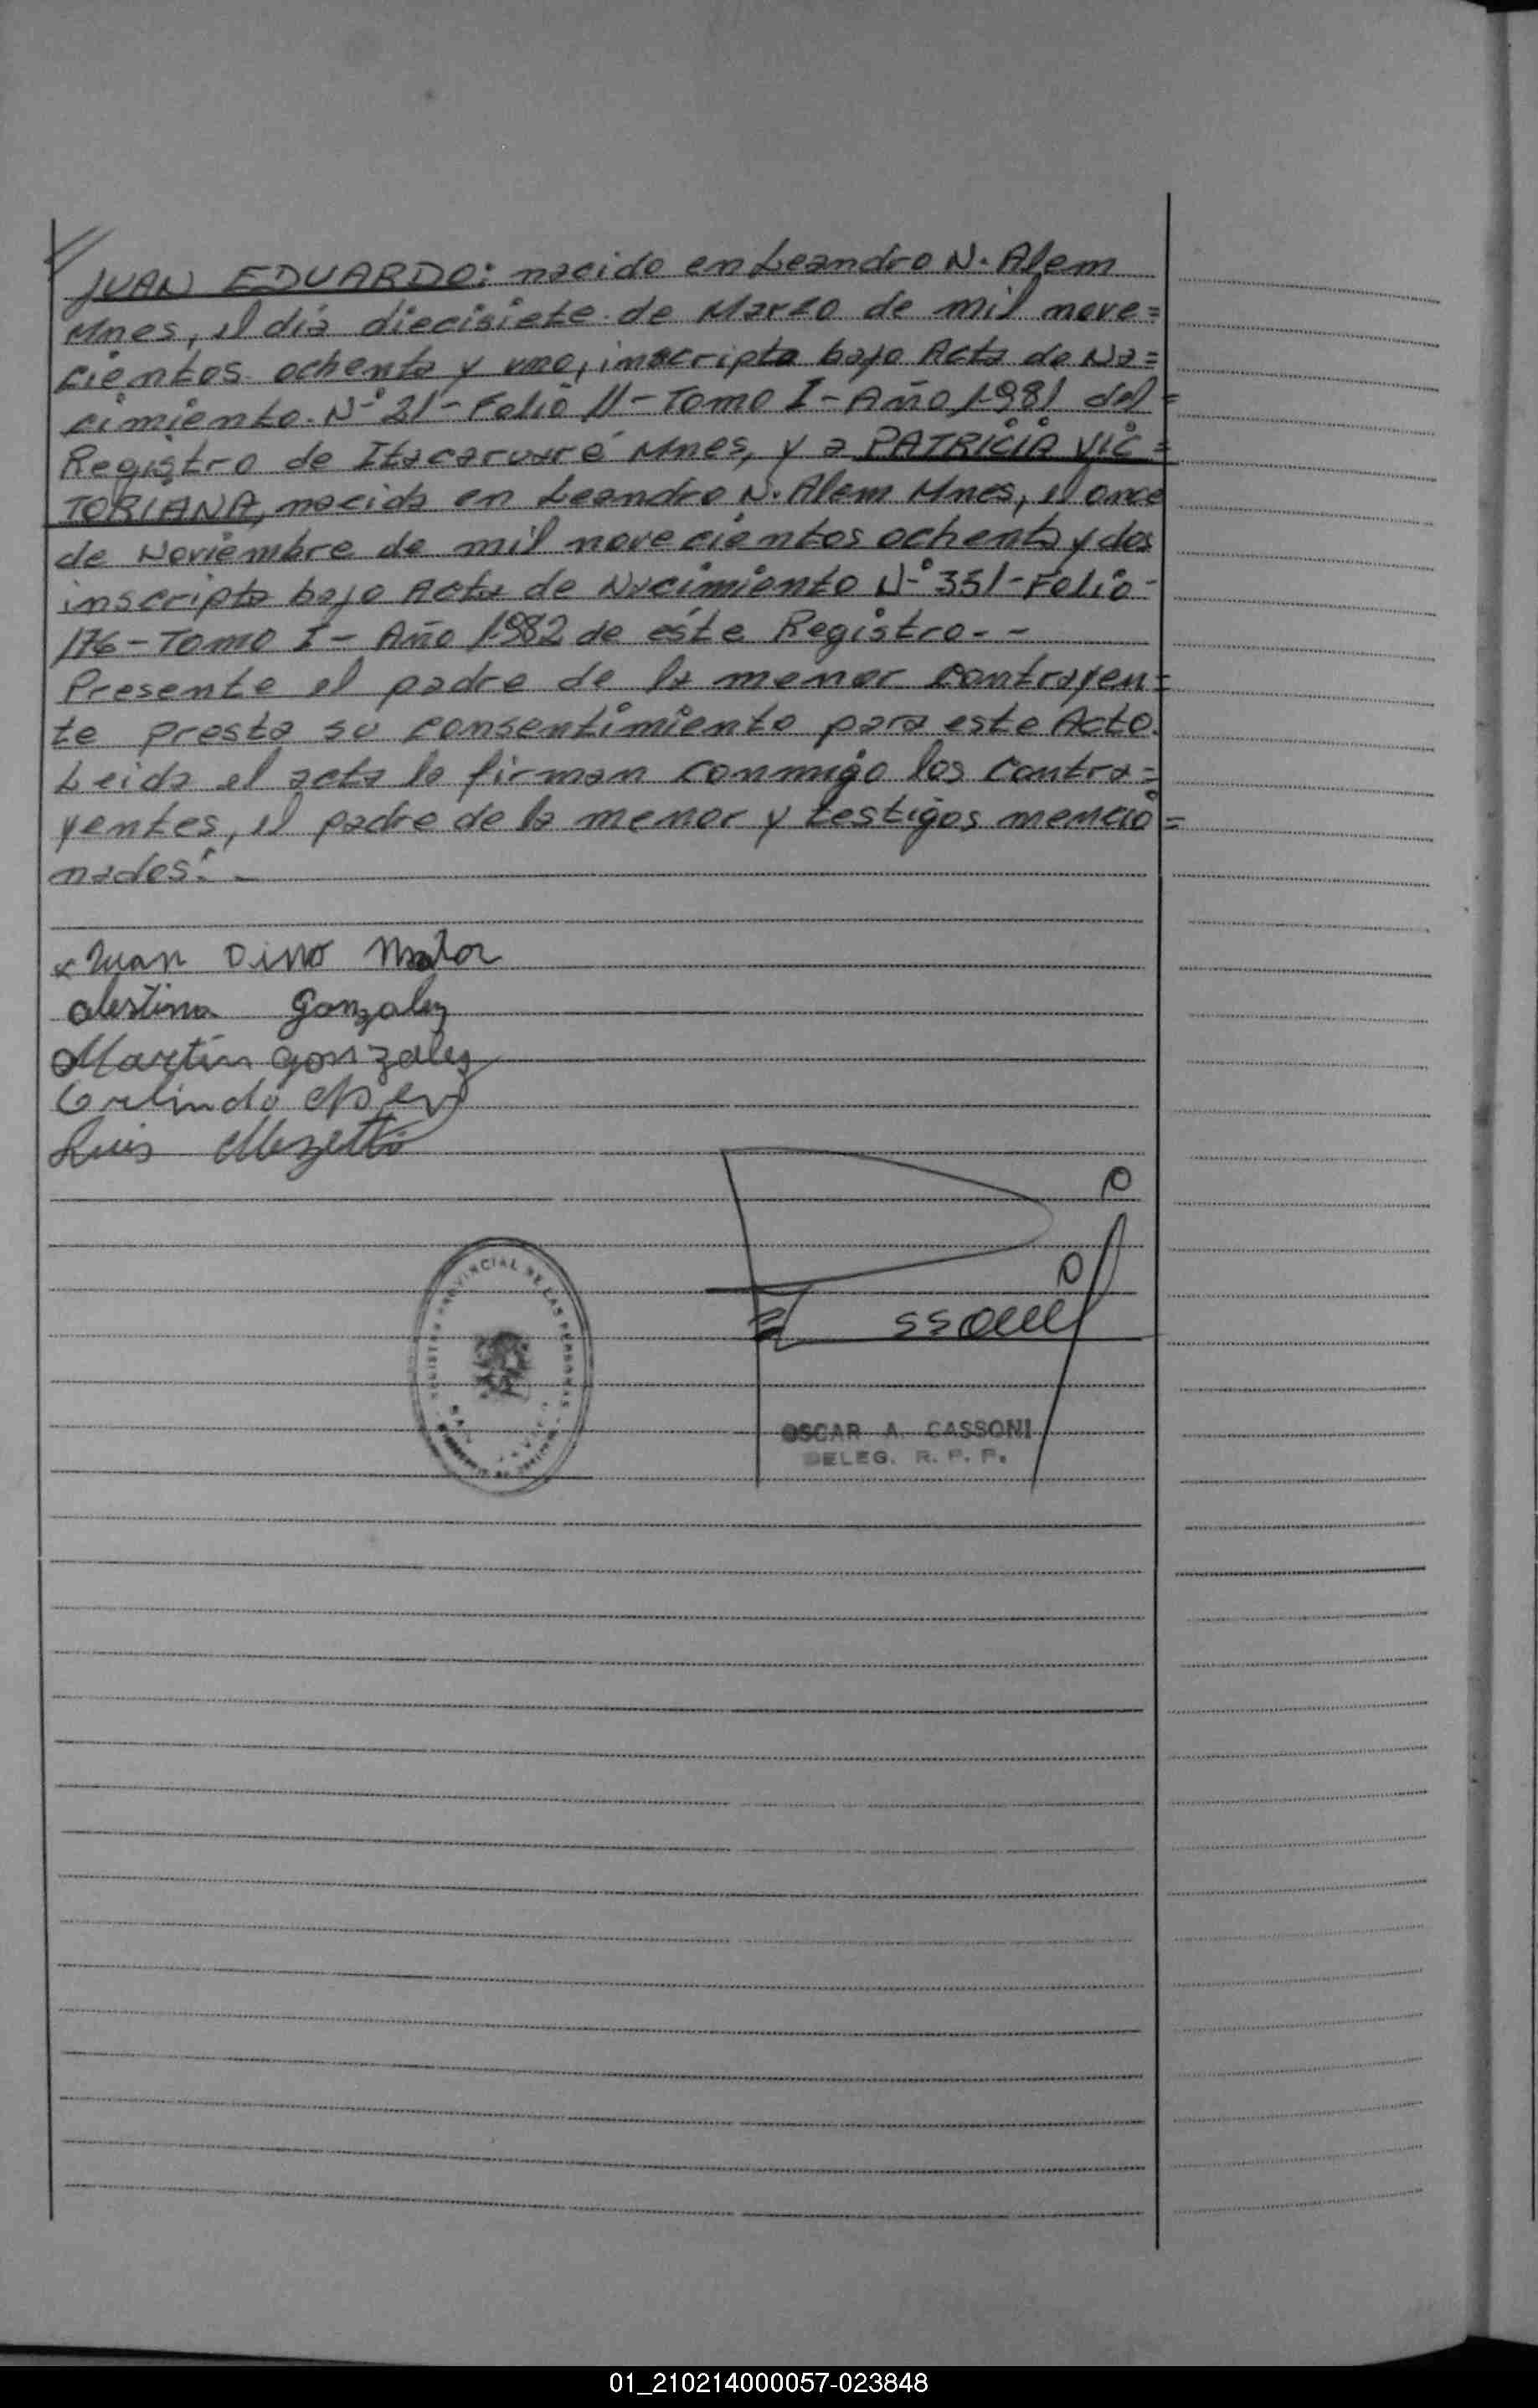 // JUAN EDUARDO: nacido en Leandro N. Alem
Mnes, el día diecisiete de Marzo de mil nove=
cientos ochenta y uno, inscripta bajo Acta de Na=
cimiento N° 21 - Folio 11 - Tomo I - Año 1981 del =
Registro de Itacaruaré Mnes, y a PATRICIA VIC=
TORIANA, nacida en Leandro N. Alem Mnes, el once
de Noviembre de mil novecientos ochenta y dos
inscripta bajo Acta de Nacimiento N° 351 - Folio -
176 - Tomo I - Año 1982 de éste Registro. - -
Presente el padre de la menor contrayen=
te presta su consentimiento para este Acto.
Leida el acta la firman conmigo los contra=
yentes, el padre de la menor y testigos mencio=
nados: -
x Juan Dino
Gonzalez
Martin Gonzalez
Luis
REGISTRO PROVINCIAL DE LAS PERSONAS
OSCAR A. CASSONI
DELEG. R. P. P.
01_210214000057-023848